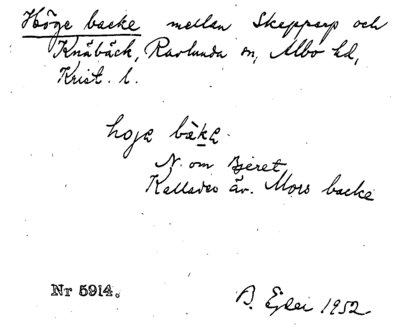 Höge backe mellan Skepparp och
Knäbäck, Ravlunda sn, Albo hd,
Krist. l.
hoga bakə
N. om
Kallades äv. Mors backe
Nr 5914.
1952